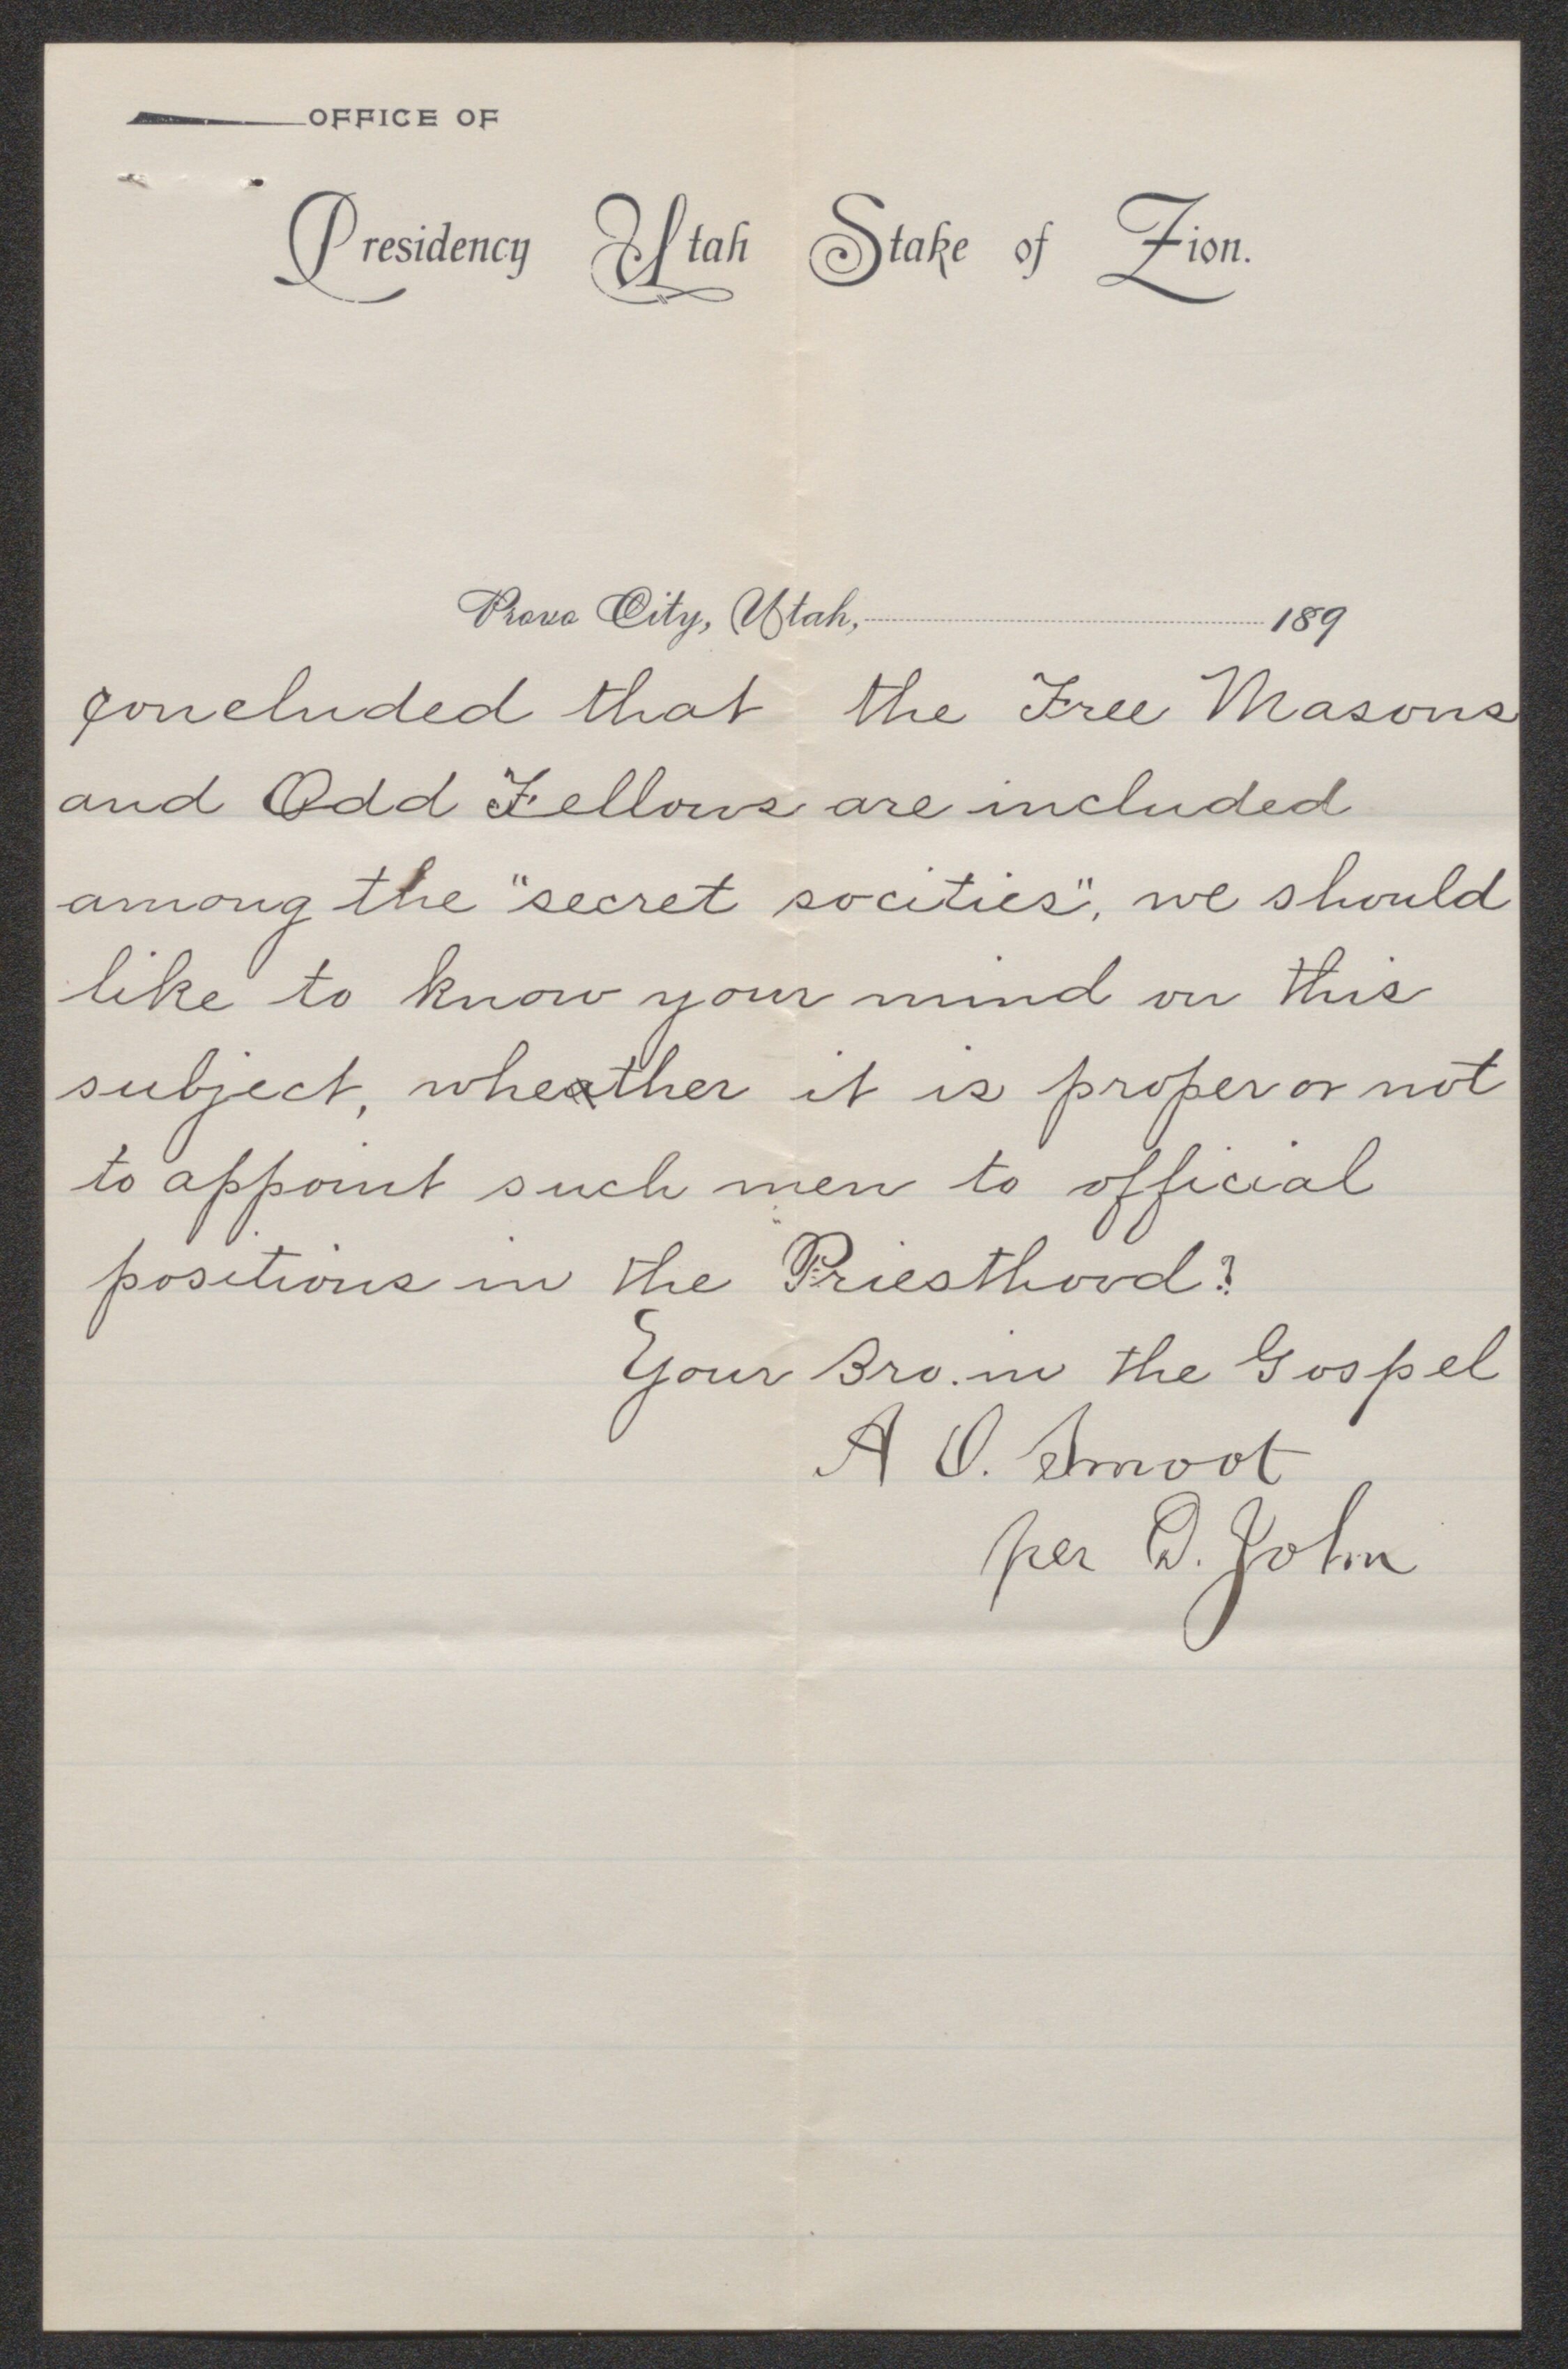 OFFICE OF
Presidency Utah Stake of Zion.
Provo City, Utah, 189
concluded that the Free Masons
and Odd Fellows are included
among the "secret socities", we should
like to know your mind on this
subject, wheather it is proper or not
to appoint such men to official
positions in the Priesthood?
Your Bro. in the Gospel
A O. Smoot
per D. John